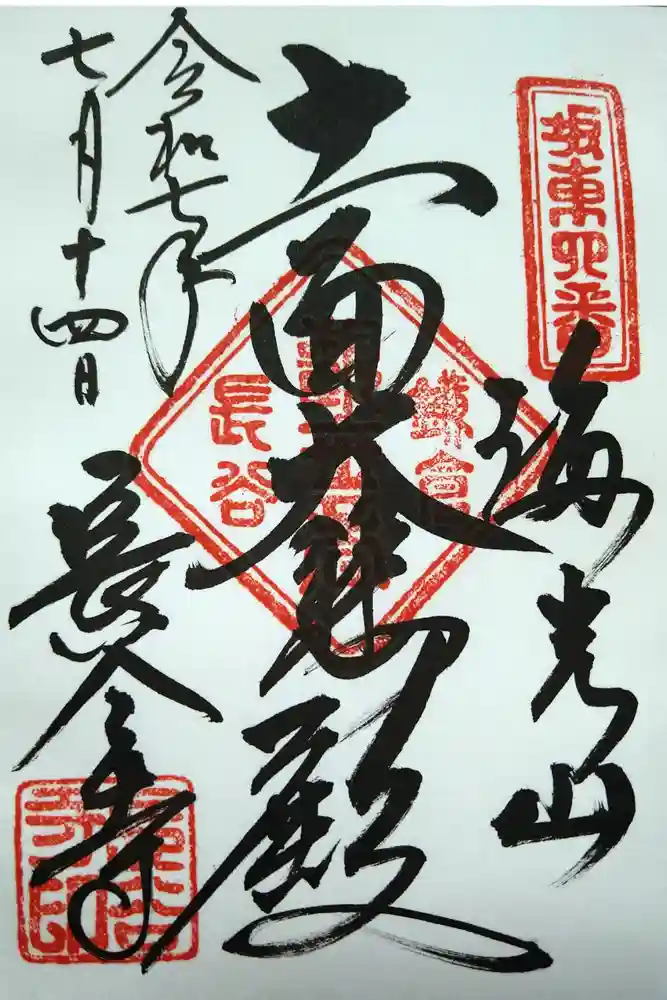 坂東四番
海光山
十一面大悲殿
鎌倉
長谷
令和七年
七月十四日
長谷寺
長谷
寺印